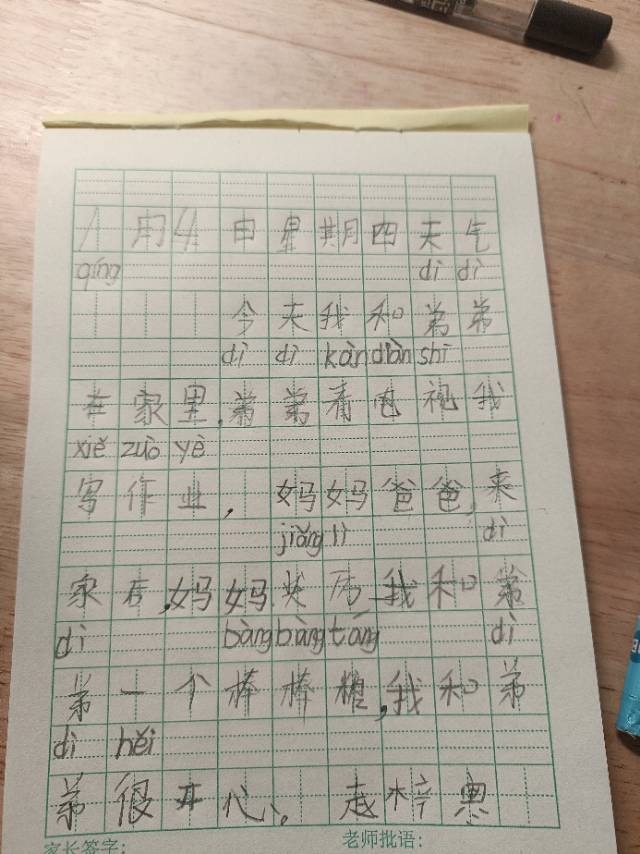 1月4日星期四天气
qíng dì dì
今天我和弟弟
dì dì kàn diàn shì
在家里,弟弟看电视我
xiě zuò yè
写作业,妈妈爸爸,来
jiǎng lì dì
家右,妈妈奖历我和弟
dì bàng bàng táng dì
弟一个棒棒糖,我和弟
dì hěi
弟很开心。赵梓
家长签字: 老师批语: